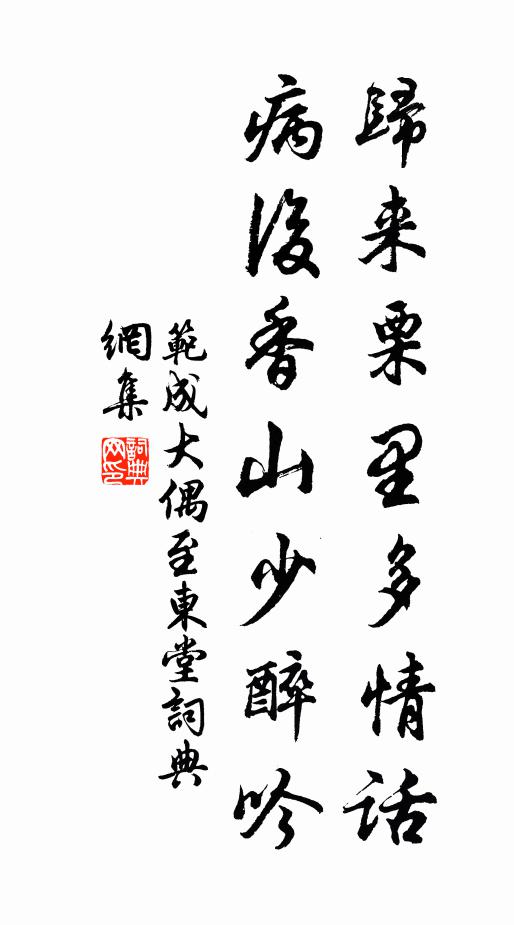 歸来栗里多情話
病後香山少醉吟
範成大偶至東堂詞典
網集
詞典网印